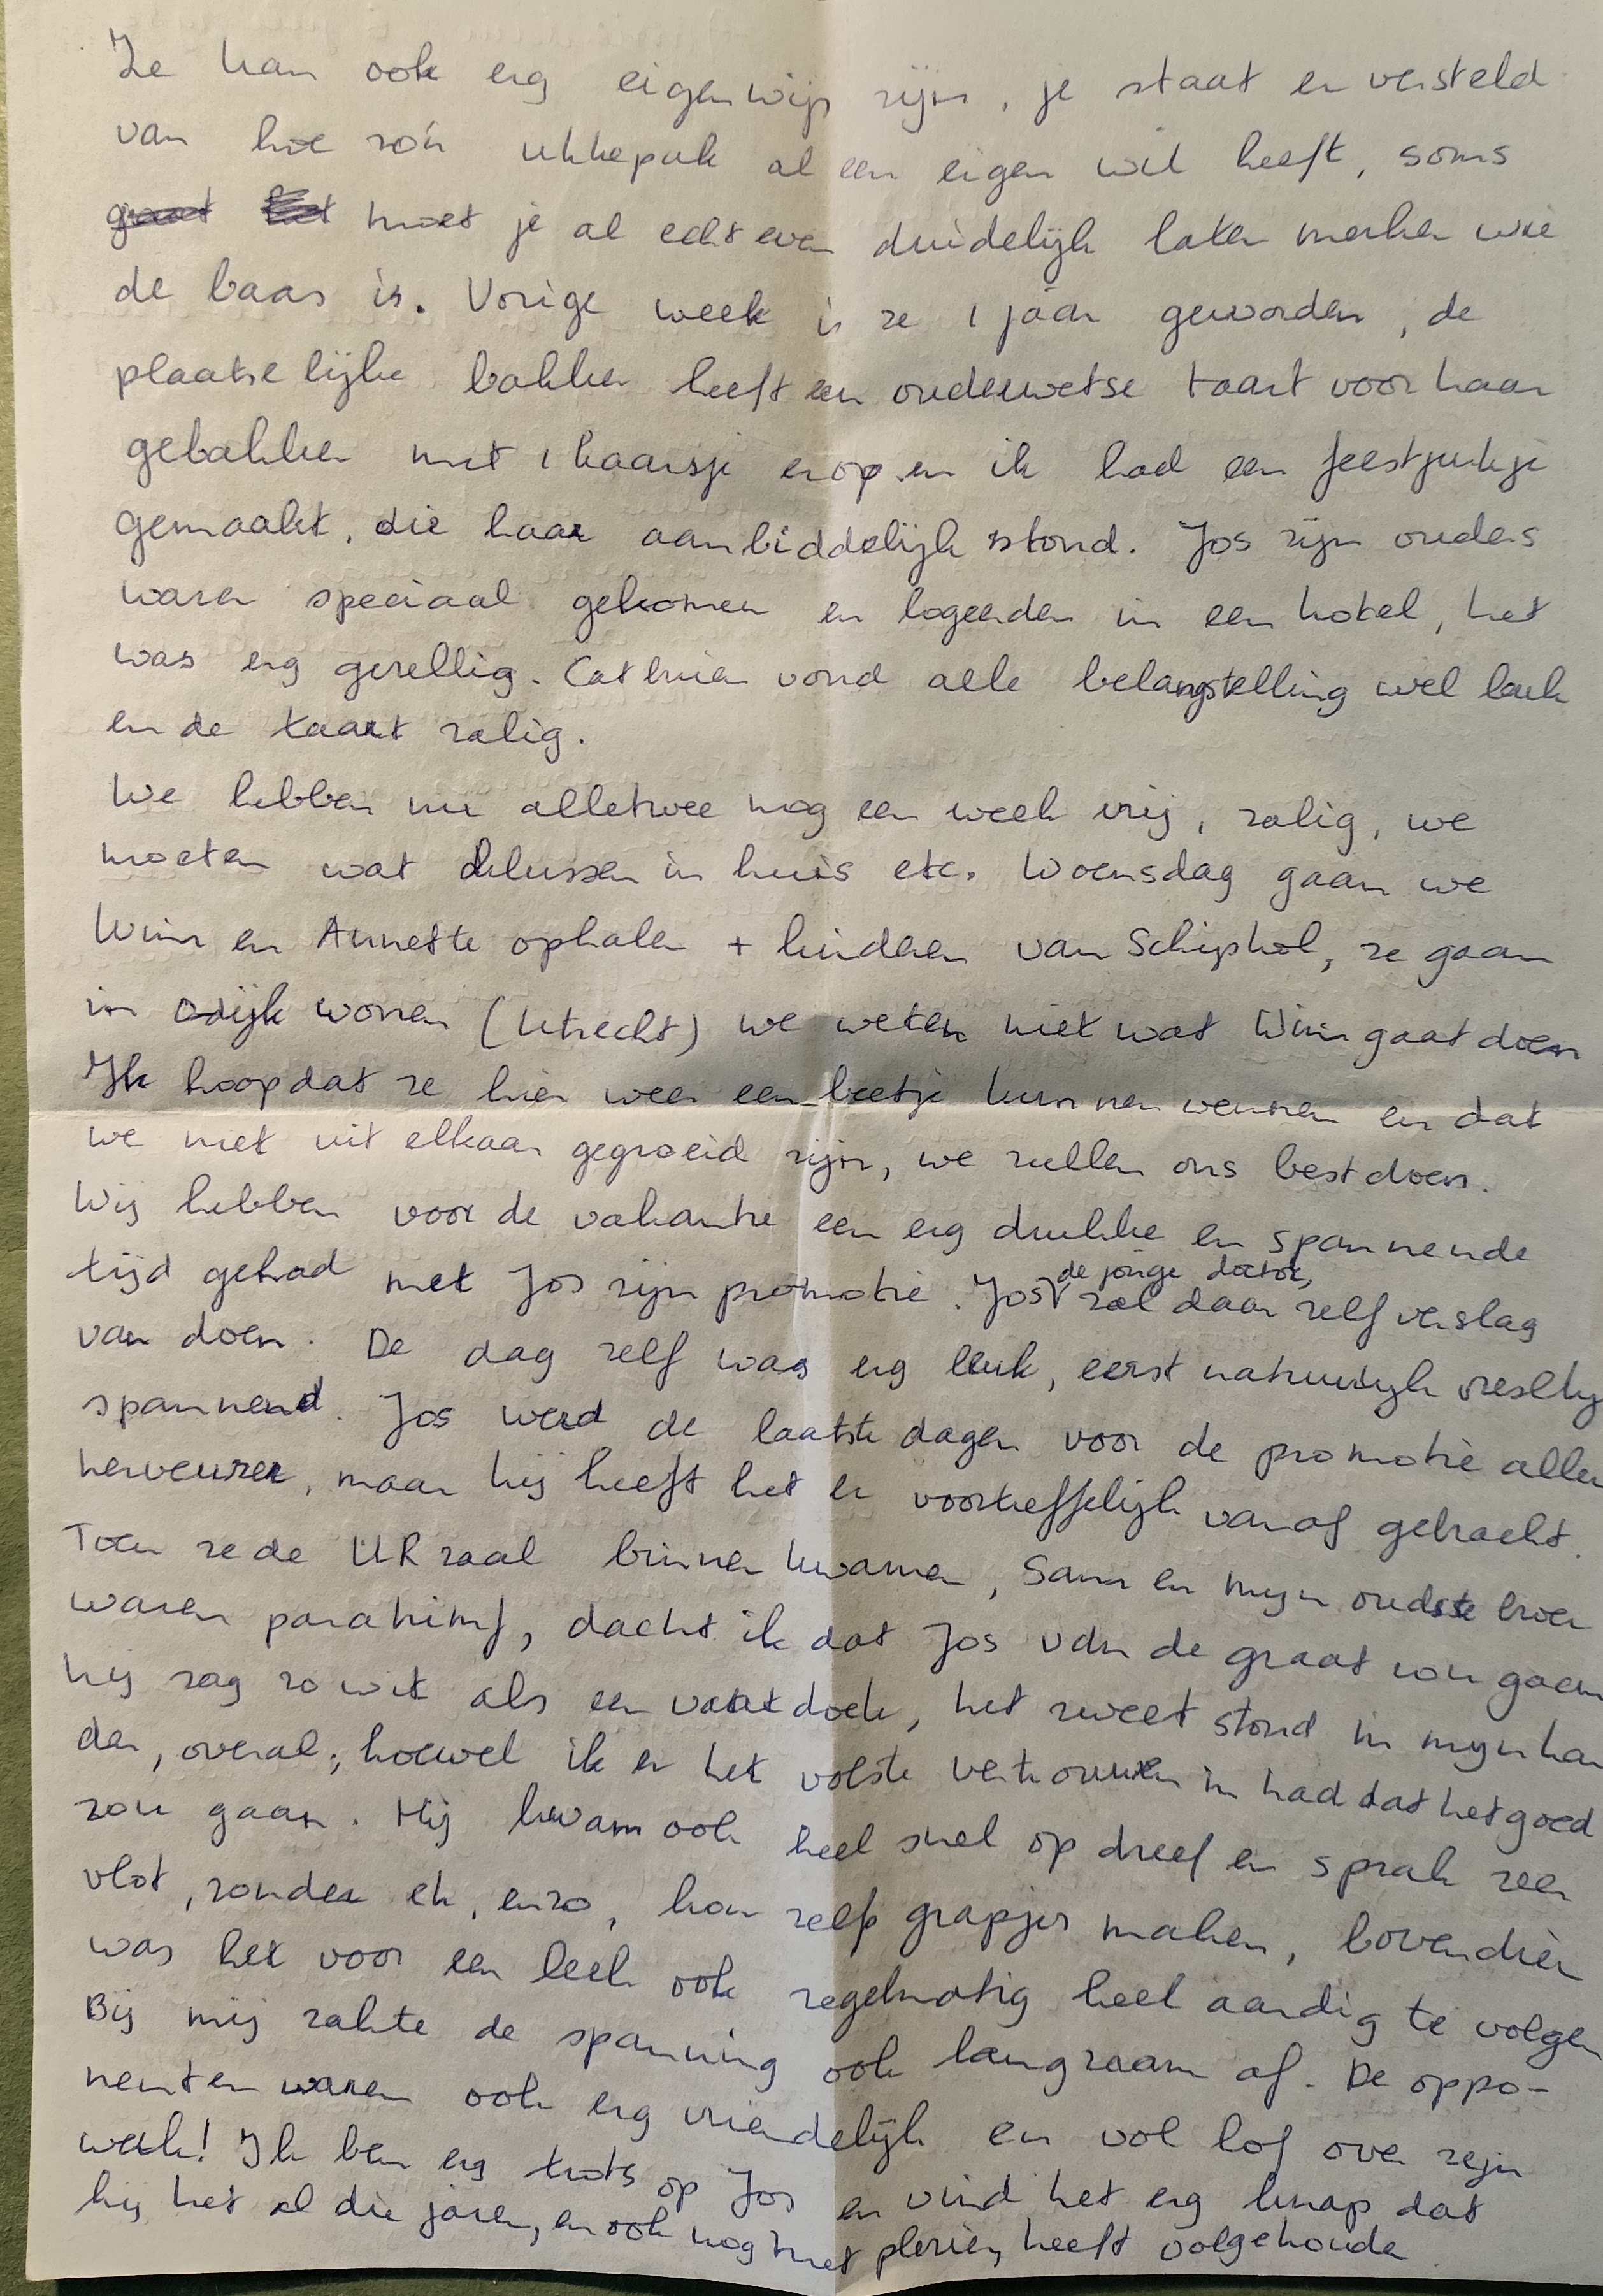 Ze kan ook erg eigenwijs zijn, je staat er versteld
van hoe zo'n ukkepuk al een eigen wil heeft, soms
moet je al echt even duidelijk laten merken wie
de baas is. Vorige week is ze 1 jaar geworden, de
plaatselijke bakker heeft een ouderwetse taart voor haar
gebakken met 1 kaarsje erop en ik had een feestjurkje
gemaakt, die haar aanbiddelijk stond. Jos zijn ouders
waren speciaal gekomen en logeerden in een hotel, het
was erg gezellig. Cathrien vond alle belangstelling wel leuk
en de taart zalig.
We hebben nu alletwee nog een week vrij, zalig, we
moeten wat klussen in huis etc. Woensdag gaan we
Wim en Annette ophalen + kinderen van Schiphol, ze gaan
in Odijk wonen (Utrecht) we weten niet wat Wim gaat doen
Ik hoop dat ze hier weer een beetje kunnen wennen en dat
we niet uit elkaar gegroeid zijn, we zullen ons best doen.
Wij hebben voor de vakantie een erg drukke en spannende
tijd gehad met Jos zijn promotie. Jos de jonge doctor, zal daar zelf verslag
van doen. De dag zelf was erg leuk, eerst natuurlijk vreselijk
spannend. Jos werd de laatste dagen voor de promotie alleen
nerveuzer, maar hij heeft het er voortreffelijk vanaf gebracht.
Toen ze de UR zaal binnen kwamen, Sam en mijn oudste broer
waren paranimf, dacht ik dat Jos van de graat zou gaan
hij zag zo wit als een vaatdoek, het zweet stond in mijn han
den, overal, hoewel ik er het volste vertrouwen in had dat het goed
zou gaan. Hij kwam ook heel snel op dreef en sprak zeer
vlot, zonder eh, enzo, kon zelfs grapjes maken, bovendien
was het voor een leek ook regelmatig heel aardig te volgen
Bij mij zakte de spanning ook langzaam af. De oppo-
nenten waren ook erg vriendelijk en vol lof over zijn
werk! Ik ben erg trots op Jos en vind het erg knap dat
hij het al die jaren, en ook nog met plezier, heeft volgehouden.